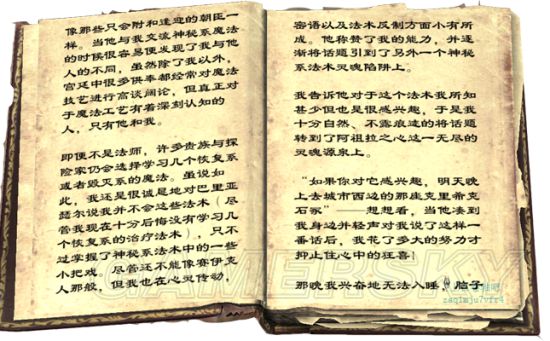 像那些只会附和逢迎的朝臣一
样。当他与我交流神秘系魔法
的时候很容易便发现了我与他
人的不同，虽然除了我以外，
宫廷中很多供奉都经常对魔法
技艺进行高谈阔论，但真正对
于魔法工艺有着深刻认知的
人，只有他和我。
即便不是法师，许多贵族与探
险家仍会选择学习几个恢复系
或者毁灭系的魔法。虽说如
此，我还是很诚恳地对巴里亚
瑟尔说我并不会这些法术（尽
管我现在十分后悔没有学习几
个恢复系的治疗法术），只不
过掌握了神秘系法术中的一些
小把戏。尽管还不能像赛伊克
人那般，但我也在心灵传动，
密语以及法术反制方面小有所
成。他称赞了我的能力，并逐
渐将话题引到了另外一个神秘
系法术灵魂陷阱上。
我告诉他对于这个法术我所知
甚少但也是很感兴趣，于是我
十分自然、不露痕迹的将话题
转到了阿祖拉之心这一无尽的
灵魂源泉上。
“如果你对它感兴趣，明天晚
上去城市西边的那座克里希克
石冢”——想想看，当他凑到
我身边并轻声对我说了这样一
番话后，我花了多大的努力才
抑止住心中的狂喜！
那晚我兴奋地无法入睡，脑子
GAMERSKY
zaq1mju7vfr4